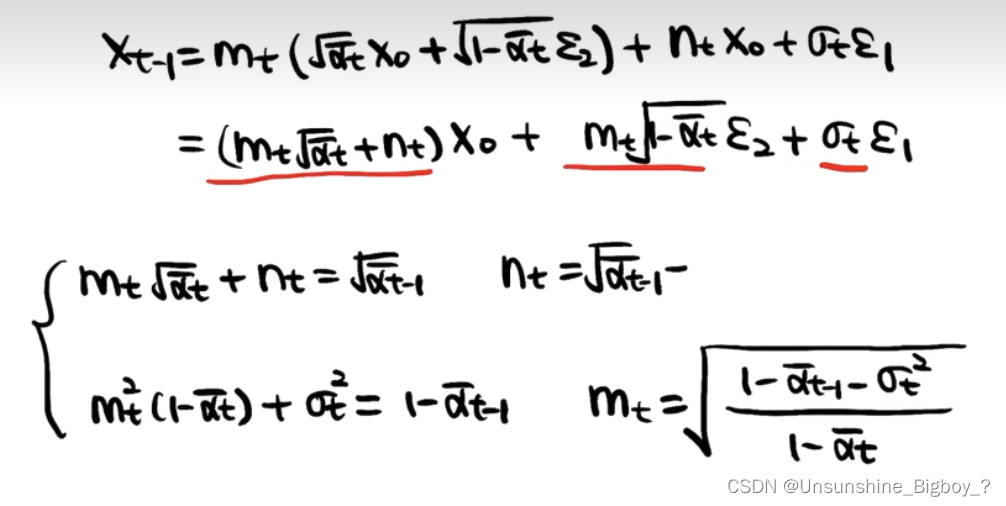 x_{t-1} = m_t (√ᾱ_t x_0 + √(1-ᾱ_t) ε_2) + n_t x_0 + σ_t ε_1
= (m_t √ᾱ_t + n_t) x_0 + m_t √(1-ᾱ_t) ε_2 + σ_t ε_1
{ m_t √ᾱ_t + n_t = √ᾱ_{t-1} n_t = √ᾱ_{t-1} -
m_t^2 (1-ᾱ_t) + σ_t^2 = 1-ᾱ_{t-1} m_t = √((1-ᾱ_{t-1}-σ_t^2)/(1-ᾱ_t))
CSDN @Unsunshine_Bigboy_?